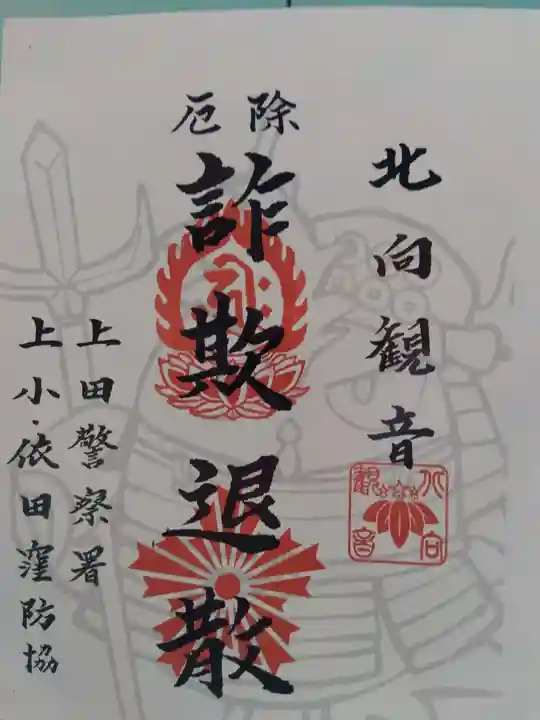 北向観音
北向
観音
厄除
詐欺退散
上田警察署
上小・依田窪防協